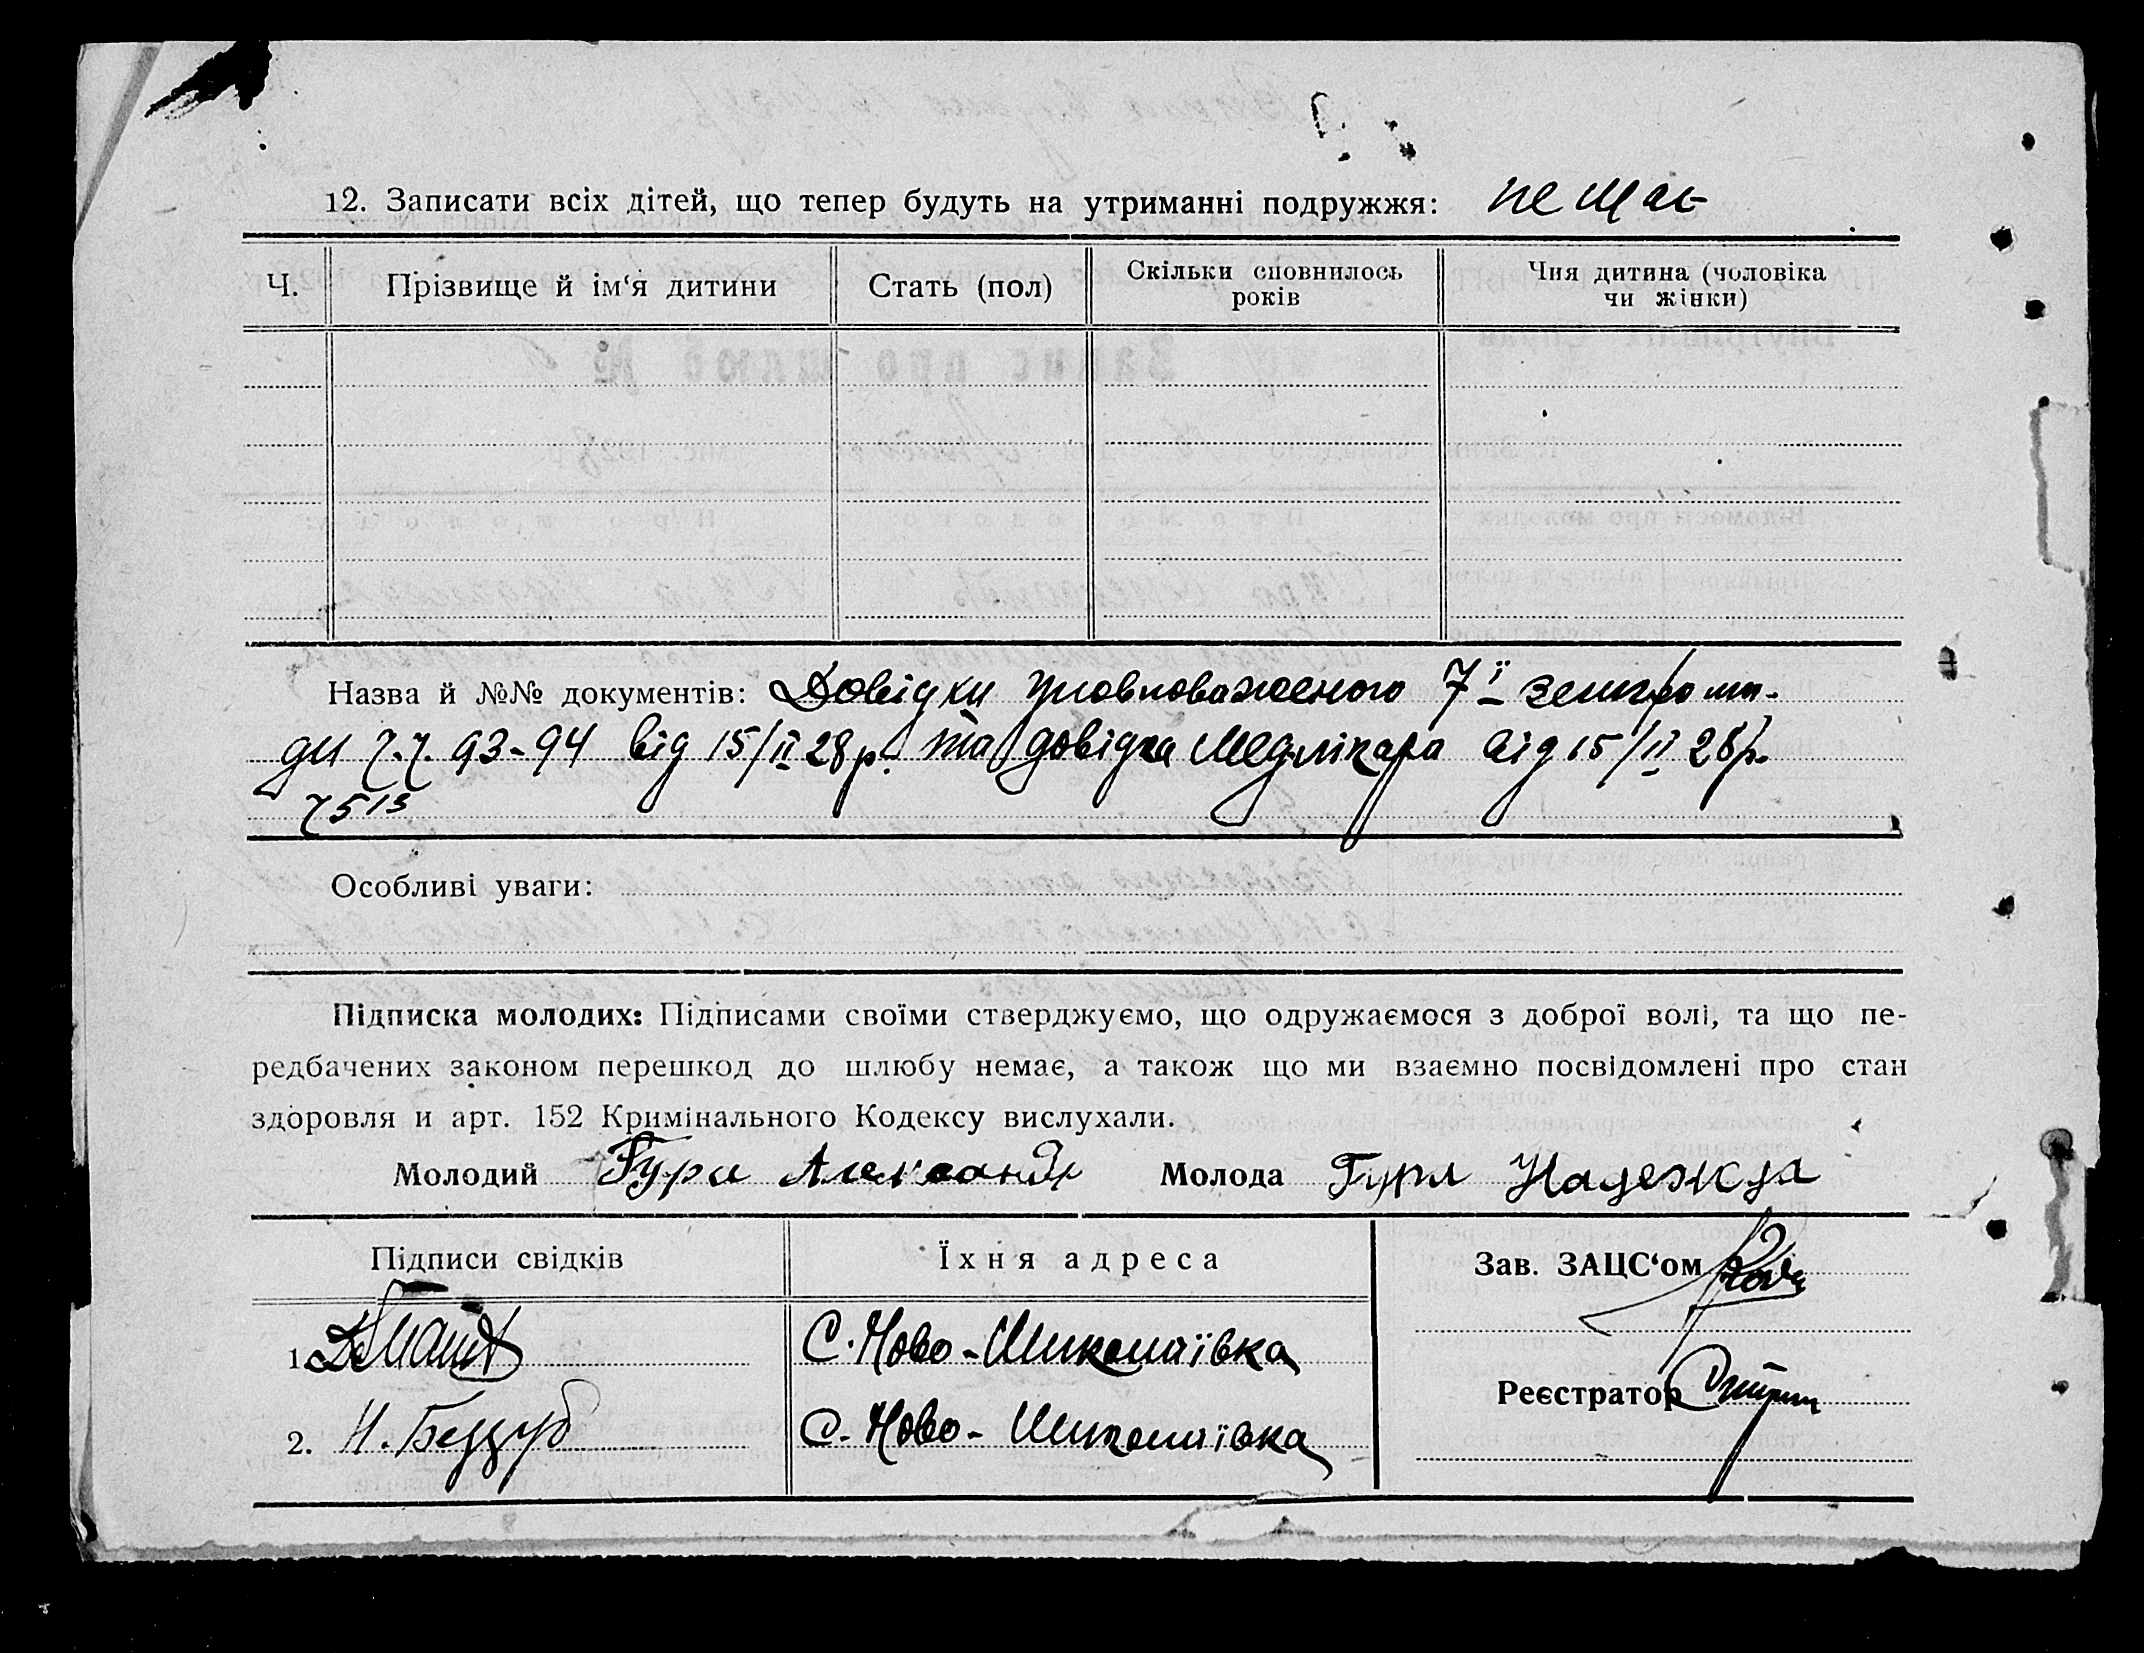 12. Записати всіх дітей, що тепер будуть на утриманні подружжя: немає
Ч. Прізвище й ім‘я дитини Стать (пол) Скільки сповнилось років Чия дитина (чоловіка чи жінки)
Назва й №№ документів: Довідки уповноваженого 7ї земгрома-
ди 93-94 від 15/II 28 р. та довідка Медлікара від 15/II 28 р.
7513
Особливі уваги:
Підписка молодих: Підписами своїми стверджуємо, що одружаємося з доброї волі, та що пе-
редбачених законом перешкод до шлюбу немає, а також що ми взаємно посвідомлені про стан
здоровля и арт. 152 Кримінального Кодексу вислухали.
Молодий Гура Александр Молода Гура Надежда
Підписи свідків Їхня адреса Зав. ЗАЦС‘ом
1. С. Ново-Миколаївка
Реєстратор
2. Н. Беззуб С. Ново-Миколаївка